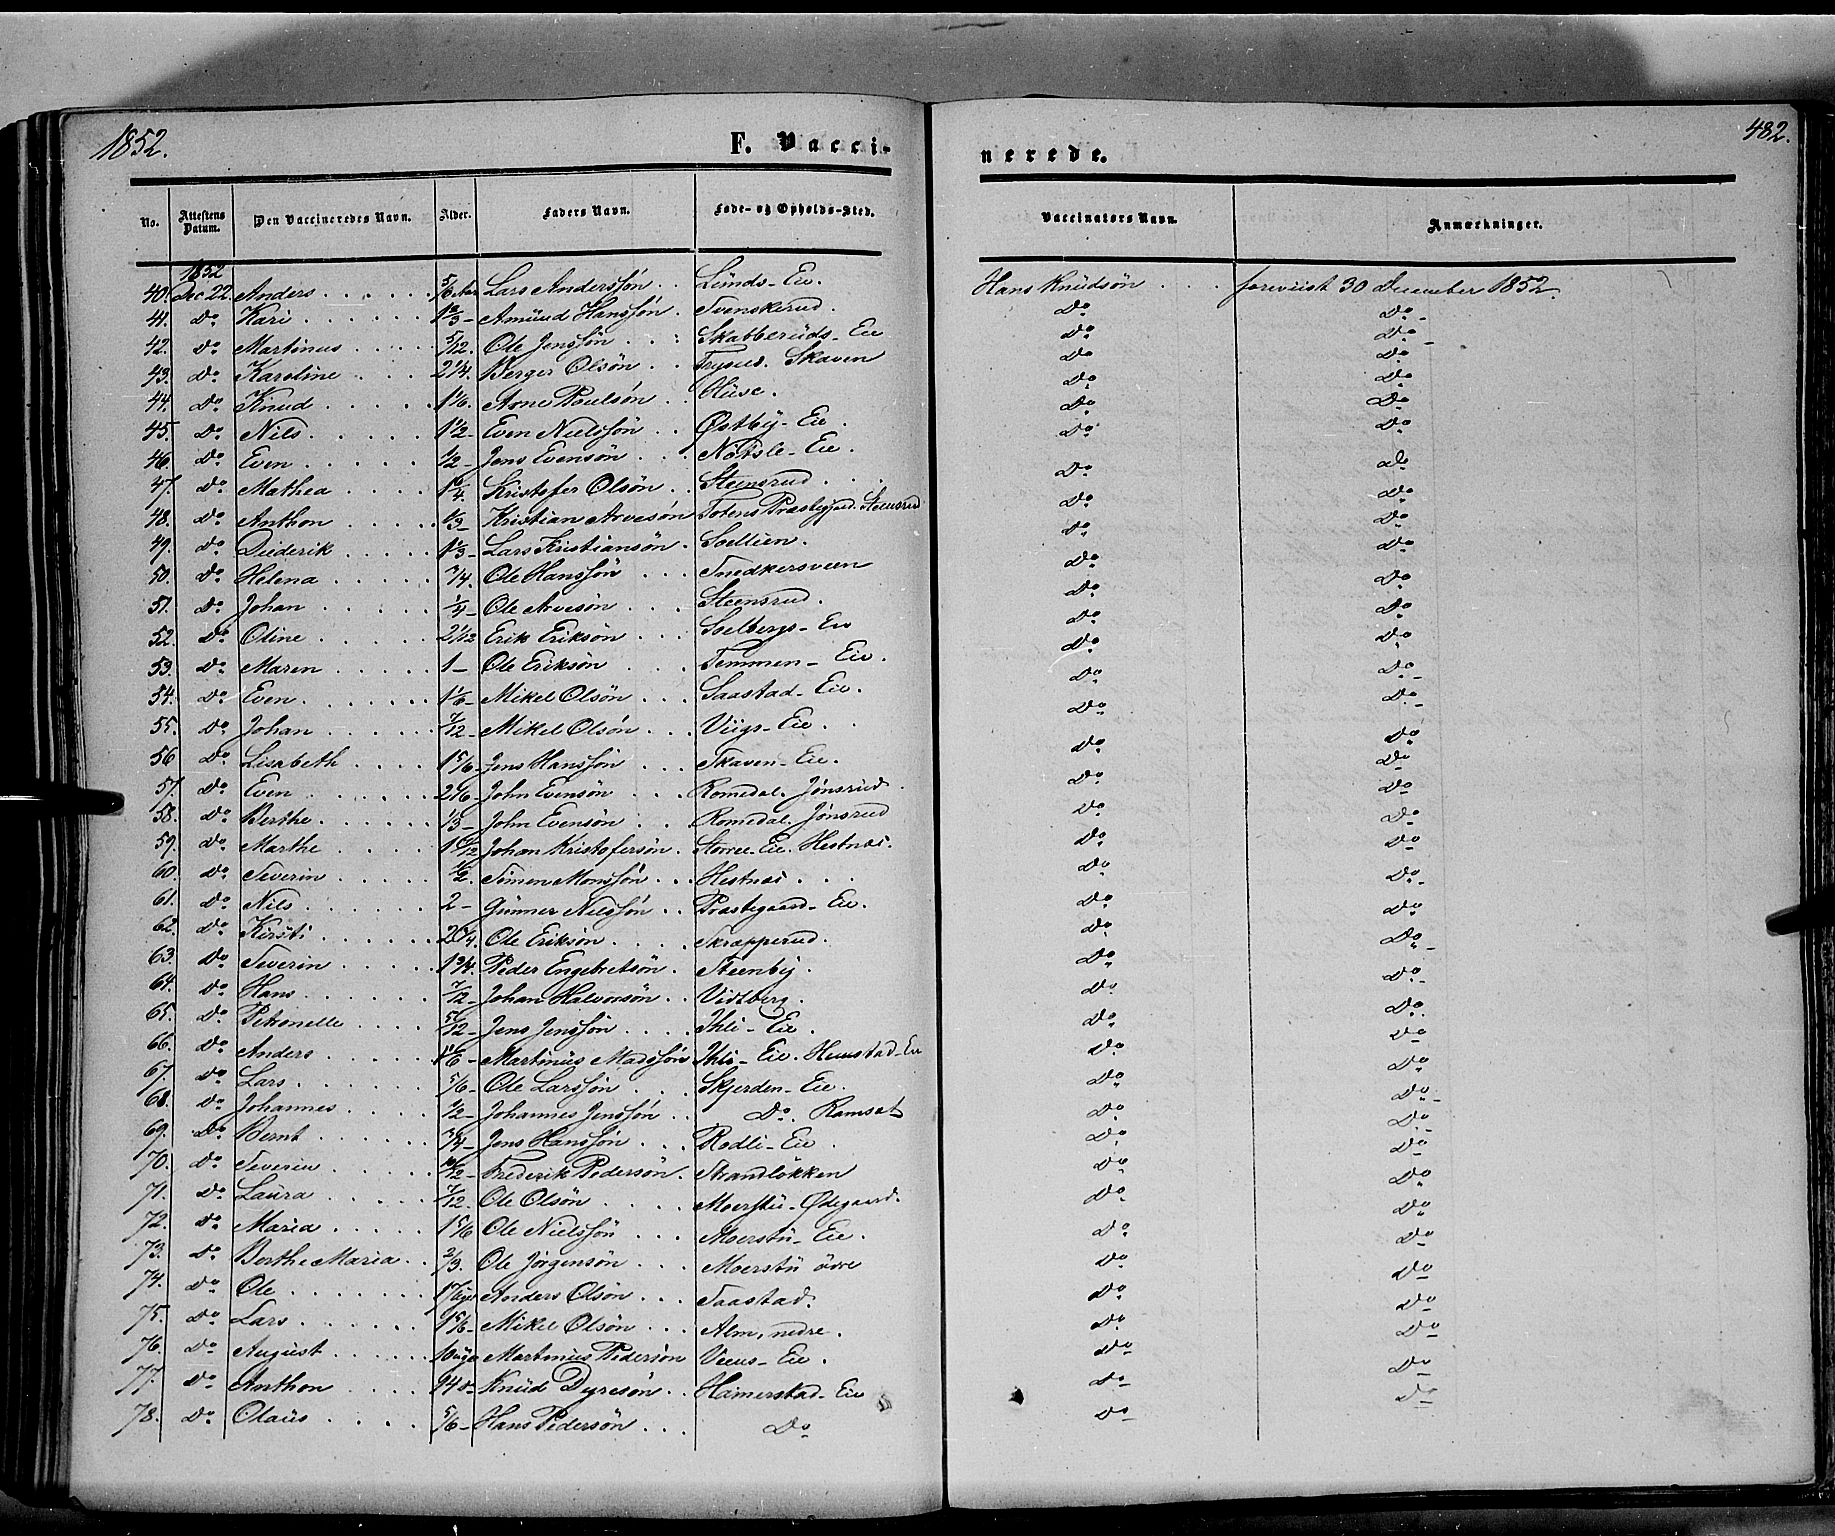 1852.
F. Vacci-
nerede.
482.
No. Attestens Datum. Den Vaccineredes Navn. Alder. Faders Navn. Føde- og Opholds-Sted. Vaccinators Navn. Anmærkninger.
1852
40. Dec 22 Anders 5/6 Aar Lars Anderssön Lunds-Eie. Hans Knudsön foreviist 30 December 1852.
41. Do Kari Amund Hanssön Svenskerud. Do Do
42. Do Martinus 5/12 Ole Jenssön Skabberuds-Eie Do Do
43. Do Karoline 2 1/4 Berger Olsön Trysil. Skaven Do Do
44. Do Knud 1 1/6 Arne Poulsön Huse. Do Do
45. Do Nils 1 1/2 Even Nielssön Østby-Eie. Do Do
46. Do Even 1/2 Jens Evensön Nøtsle-Eie. Do Do
47. Do Mathea Kristofer Olsön Steensrud Do do
48. Do Anthon 1/3 Kristian Arvesön Totens Præstegjæld. Steensrud Do Do
49. Do Diderik 1 1/3 Lars Kristiansön Soelien. Do Do
50. Do Helena 3/4 Ole Hanssön Snedkersveen Do Do
51. Do Johan 1/4 Ole Arvesön Steensrud. Do Do
52. Do Oline 2 1/12 Erik Eriksön Soelbergs-Eie Do Do
53. Do Maren 1 Ole Eriksön Temmen-Eie. Do Do
54. Do Even 1 1/6 Mikel Olsön Saastad-Eie. Do Do
55. Do Johan 7/12 Mikel Olsön Viigs-Eie. Do Do
56 Do Lisabeth 1 5/6 Jens Hanssön Skaven-Eie. Do Do
57. Do Even 2 1/6 John Evensön Romedal. Jønsrud. Do Do
58. Do Berthe 1/3 John Evensön Romedal. Jønsrud Do Do
59. Do Marthe Johan Kristofersön Storre-Eie. Hestnæs. Do Do
60. Do Severin 1/2 Simen Monssön Hestnæs Do Do
61. Do Nils 2 Gunner Nilssön Præstegaard-Eie. Do Do
62. Do Kirsti Ole Eriksön Skrapperud. Do Do
63. Do Severin 1 3/4 Peder Engebretsön Steenby. Do Do
64. Do Hans 7/12 Johan Halvorsön Vidtberg. Do Do
65. Do Petronelle 5/12 Jens Jenssön Ihli-Eie. Do Do
66. Do Anders 1 1/6 Martinus Madssön Ihli-Eie. Hemstad-Eie Do Do
67. Do Lars 5/6 Ole Larssön Skjerden-Eie. Do Do
68. Do Johannes 1/2 Johannes Jenssön Do. Ramsæt Do Do
69. Do Bernt 3/4 Jens Hanssön Rodli-Eie. Do Do
70. Do Severin Frederik Pedersön Strandlökken Do Do
71. Do Laura 7/12 Ole Olsön Moerstu-Ødegaard. Do Do
72. Do Maria 1 5/6 Ole Nielssön Moerstu-Eie. Do Do
73. Do Berthe Maria 2/3. Ole Jörgensön Moerstu övre Do Do
74. Do Ole Anders Olsön Saastad. Do Do
75. Do Lars 1 5/6 Mikel Olsön Alm, nedre. Do Do
76. Do August 10 uger Martinus Pedersön Veeus-Eie. Do Do
77. Do Anthon Knud Dyresön Hamerstad-Eie Do Do
78. Do Olaus 5/6 Hans Pedersön Do Do Do